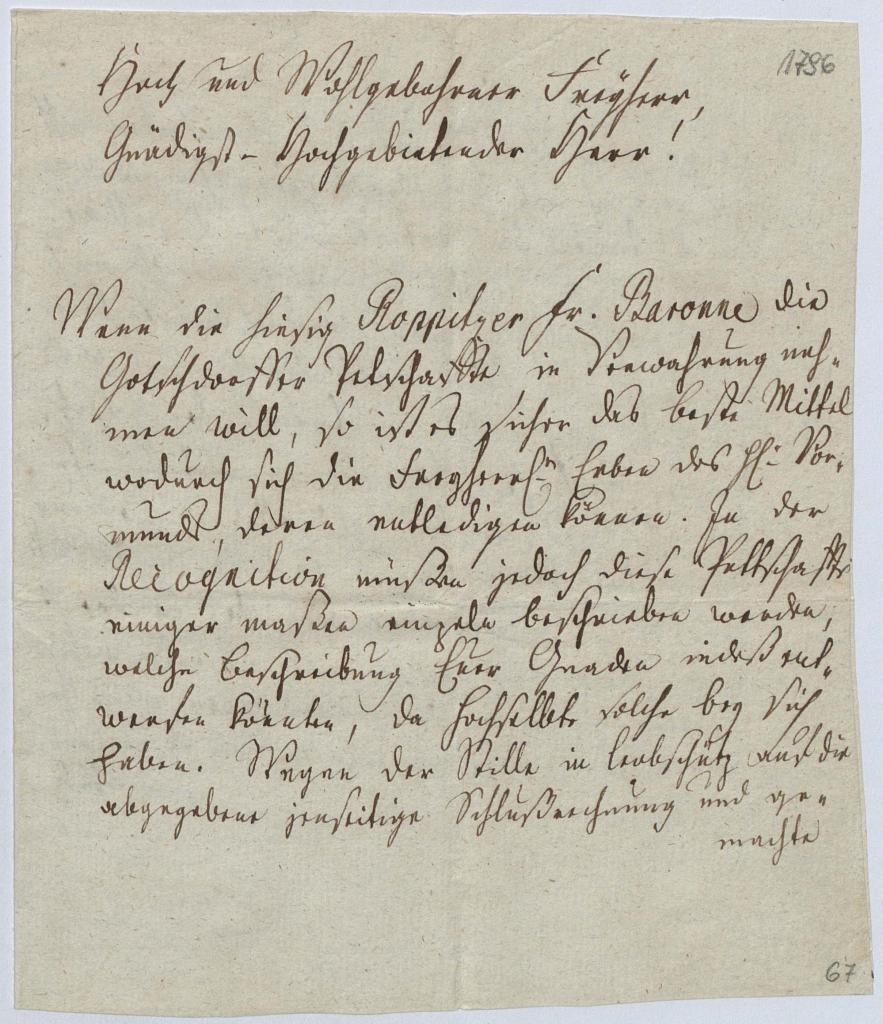 1796
Hoch und Wohlgebohrner Freyherr,
Gnädigst-Hochgebietender Herr!
Wenn die hiesig Roppitzer Fr. Baronne die
Gotschdorffer Petschaffte in Verwahrung neh-
men will, so ist es sicher das beste Mittel
wodurch sich die Freyherrl. Erben des H. Vor-
munds, deren entledigen können. In der
Recognition müßen jedoch diese Pettschaffte
einiger maßen einzeln beschrieben werden,
welche Beschreibung Euer Gnaden indeß ent-
werfen könnten, da hochselbte solche bey sich
haben. Wegen der Stille in Leobschütz auf die
abgegebene jenseitige Schlußrechnung und ge-
machte
67